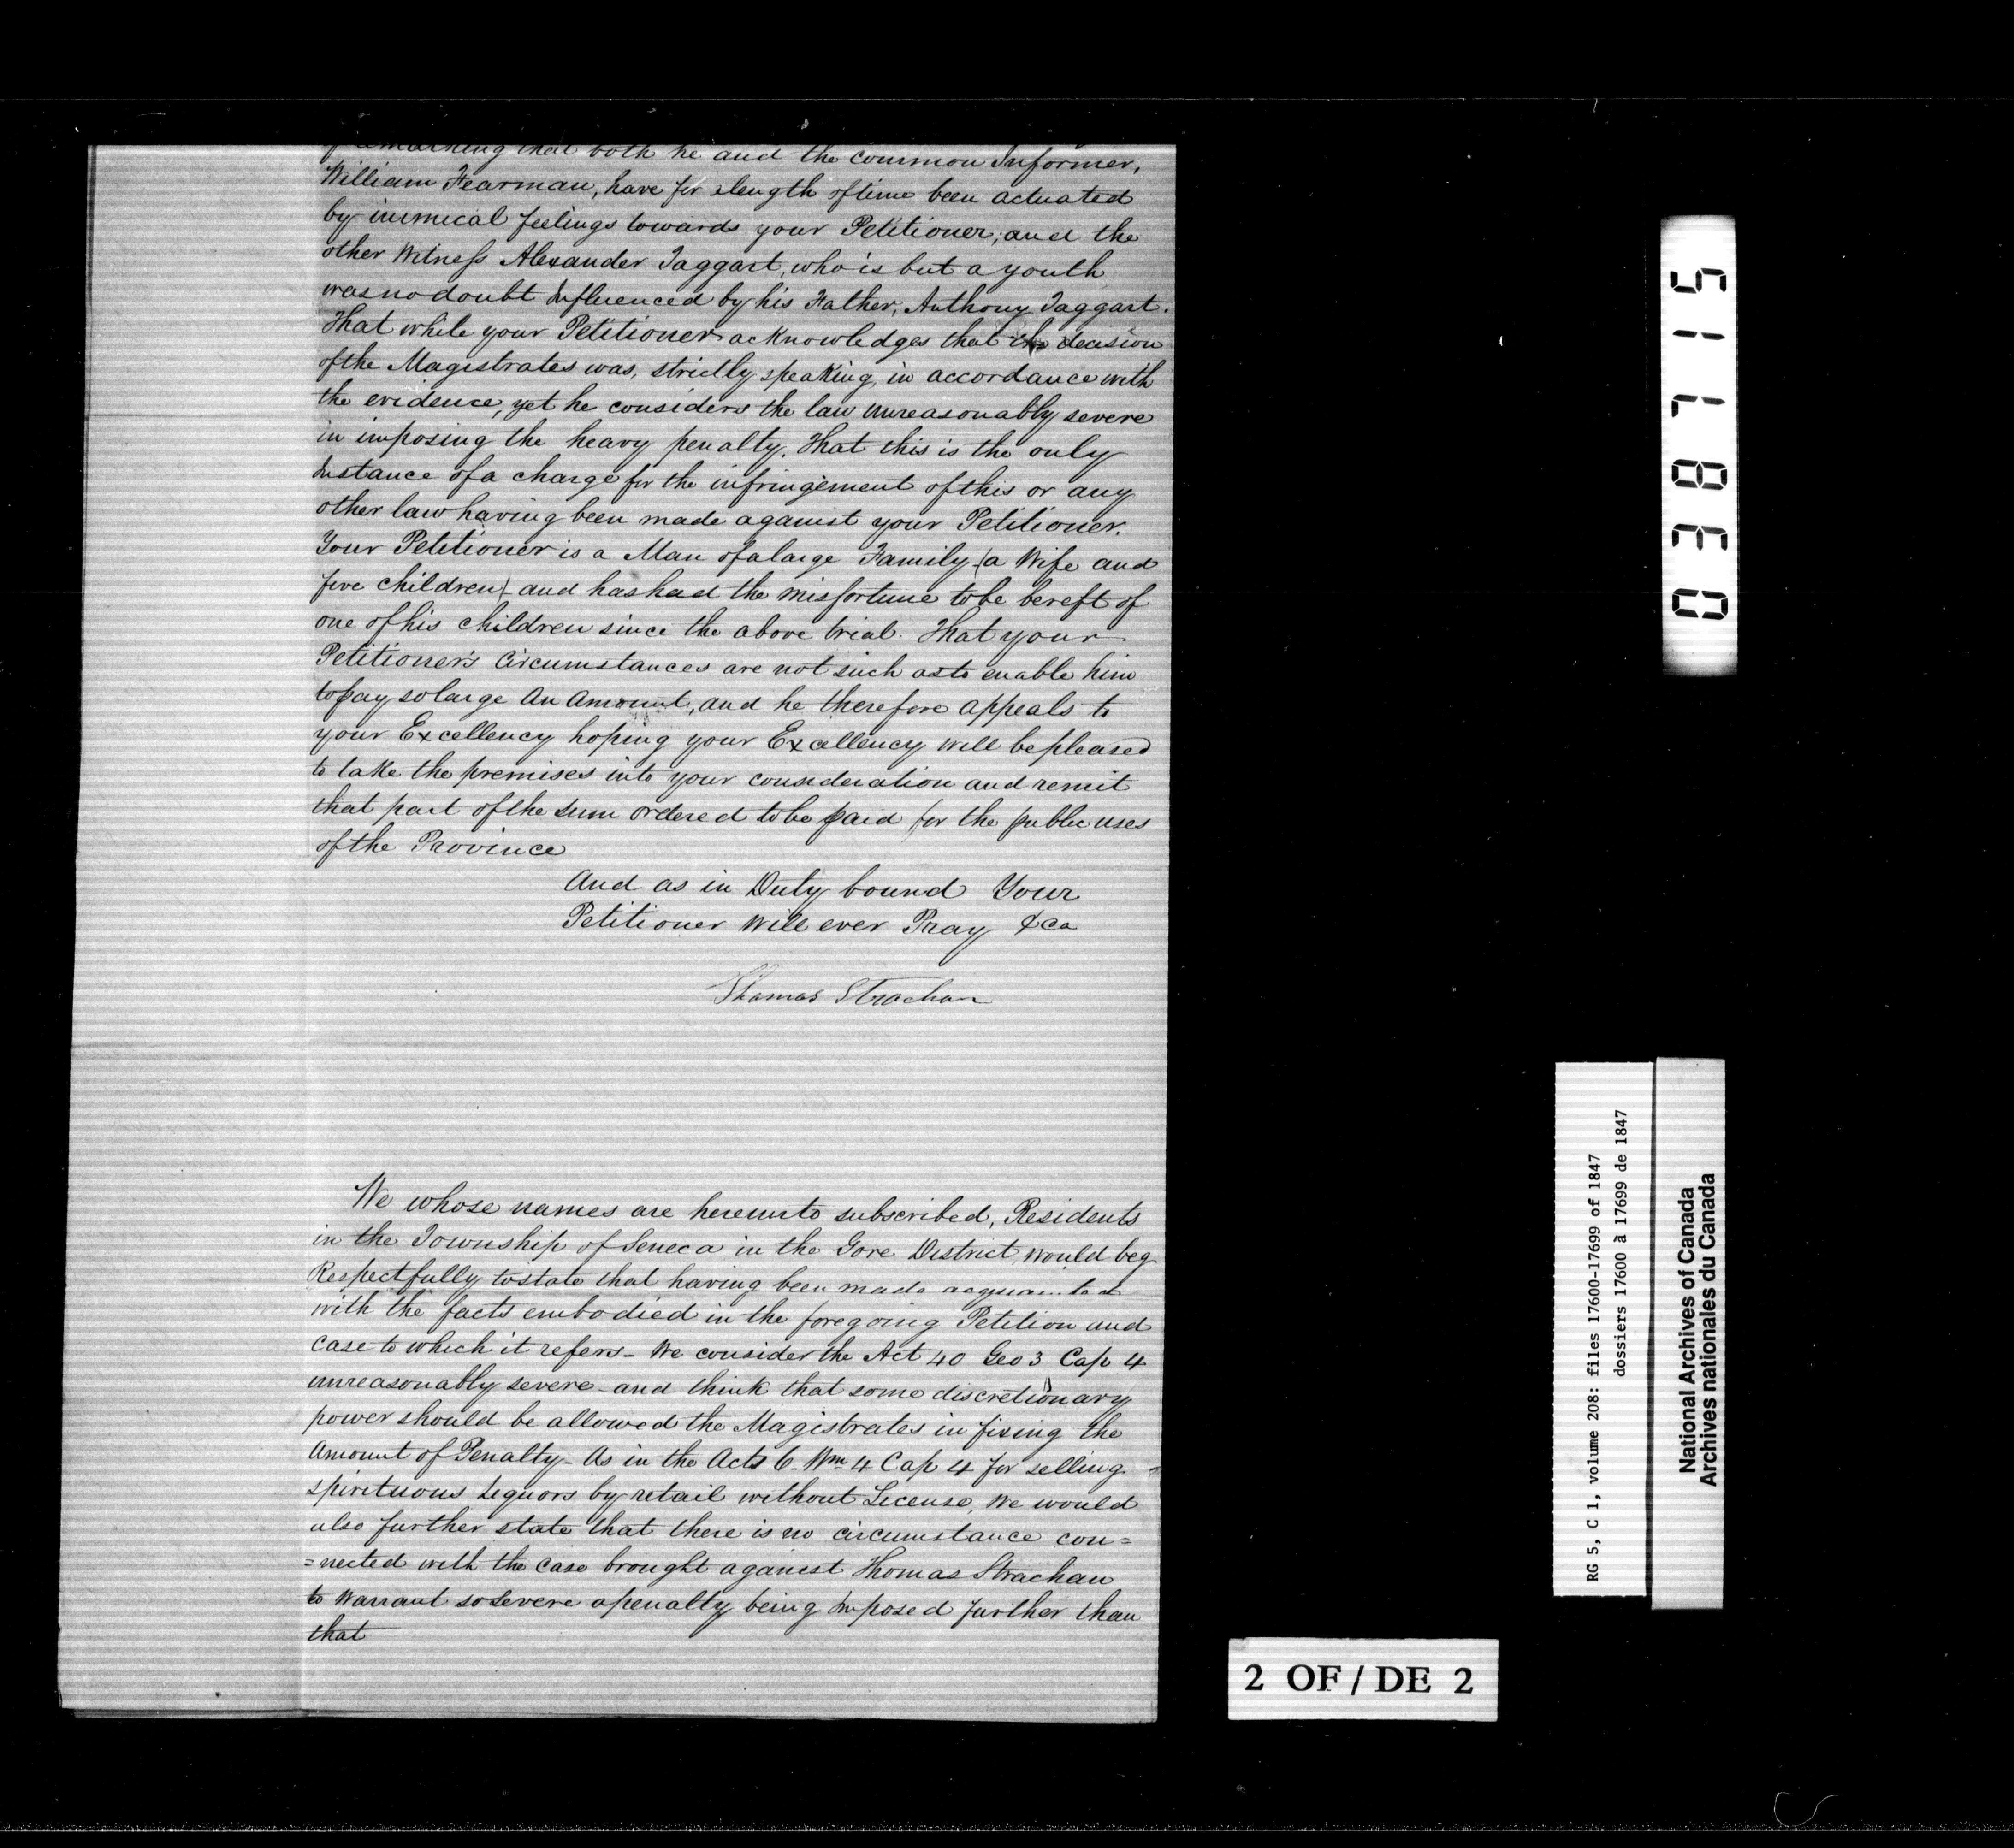 remarking that both he and the common Informer,
William Fearman, have for a length of time been actuated
by inimical feelings towards your Petitioner; and the
other Witness Alexander Taggart, who is but a youth
was no doubt Influenced by his Father, Anthony Taggart.
That while your Petitioner acknowledges that the decision
of the Magistrates was, strictly speaking, in accordance with
the evidence, yet he considers the law unreasonably severe
in imposing the heavy penalty. That this is the only
Instance of a charge for the infringement of this or any
other law having been made against your Petitioner.
Your Petitioner is a Man of a large Family (a Wife and
five children) and has had the misfortune to be bereft of
one of his children since the above trial. That your
Petitioner's Circumstances are not such as to enable him
to pay so large an Amount, and he therefore appeals to
your Excellency hoping your Excellency will be pleased
to take the premises into your consideration and remit
that part of the sum ordered to be paid for the public uses
of the Province
And as in Duty bound Your
Petitioner will ever Pray &ca
Thomas Strachan
We whose names are hereunto subscribed, Residents
in the Township of Seneca in the Gore District, would beg
Respectfully to state that having been made acquainted
with the facts embodied in the foregoing Petition and
case to which it refers - We consider the Act 40 Geo 3 Cap 4
unreasonably severe - and think that some discretionary
power should be allowed the Magistrates in fixing the
Amount of Penalty - As in the Acts 6 Wm 4 Cap 4 for selling
spirituous Liquors by retail without License, We would
also further state that there is no circumstance con=
=nected with the case brought against Thomas Strachan
to Warrant so Severe a penalty being Imposed further than
that
038715
RG 5, C 1, volume 208: files 17600-17699 of 1847
dossiers 17600 à 17699 de 1847
National Archives of Canada
Archives nationales du Canada
2 OF / DE 2